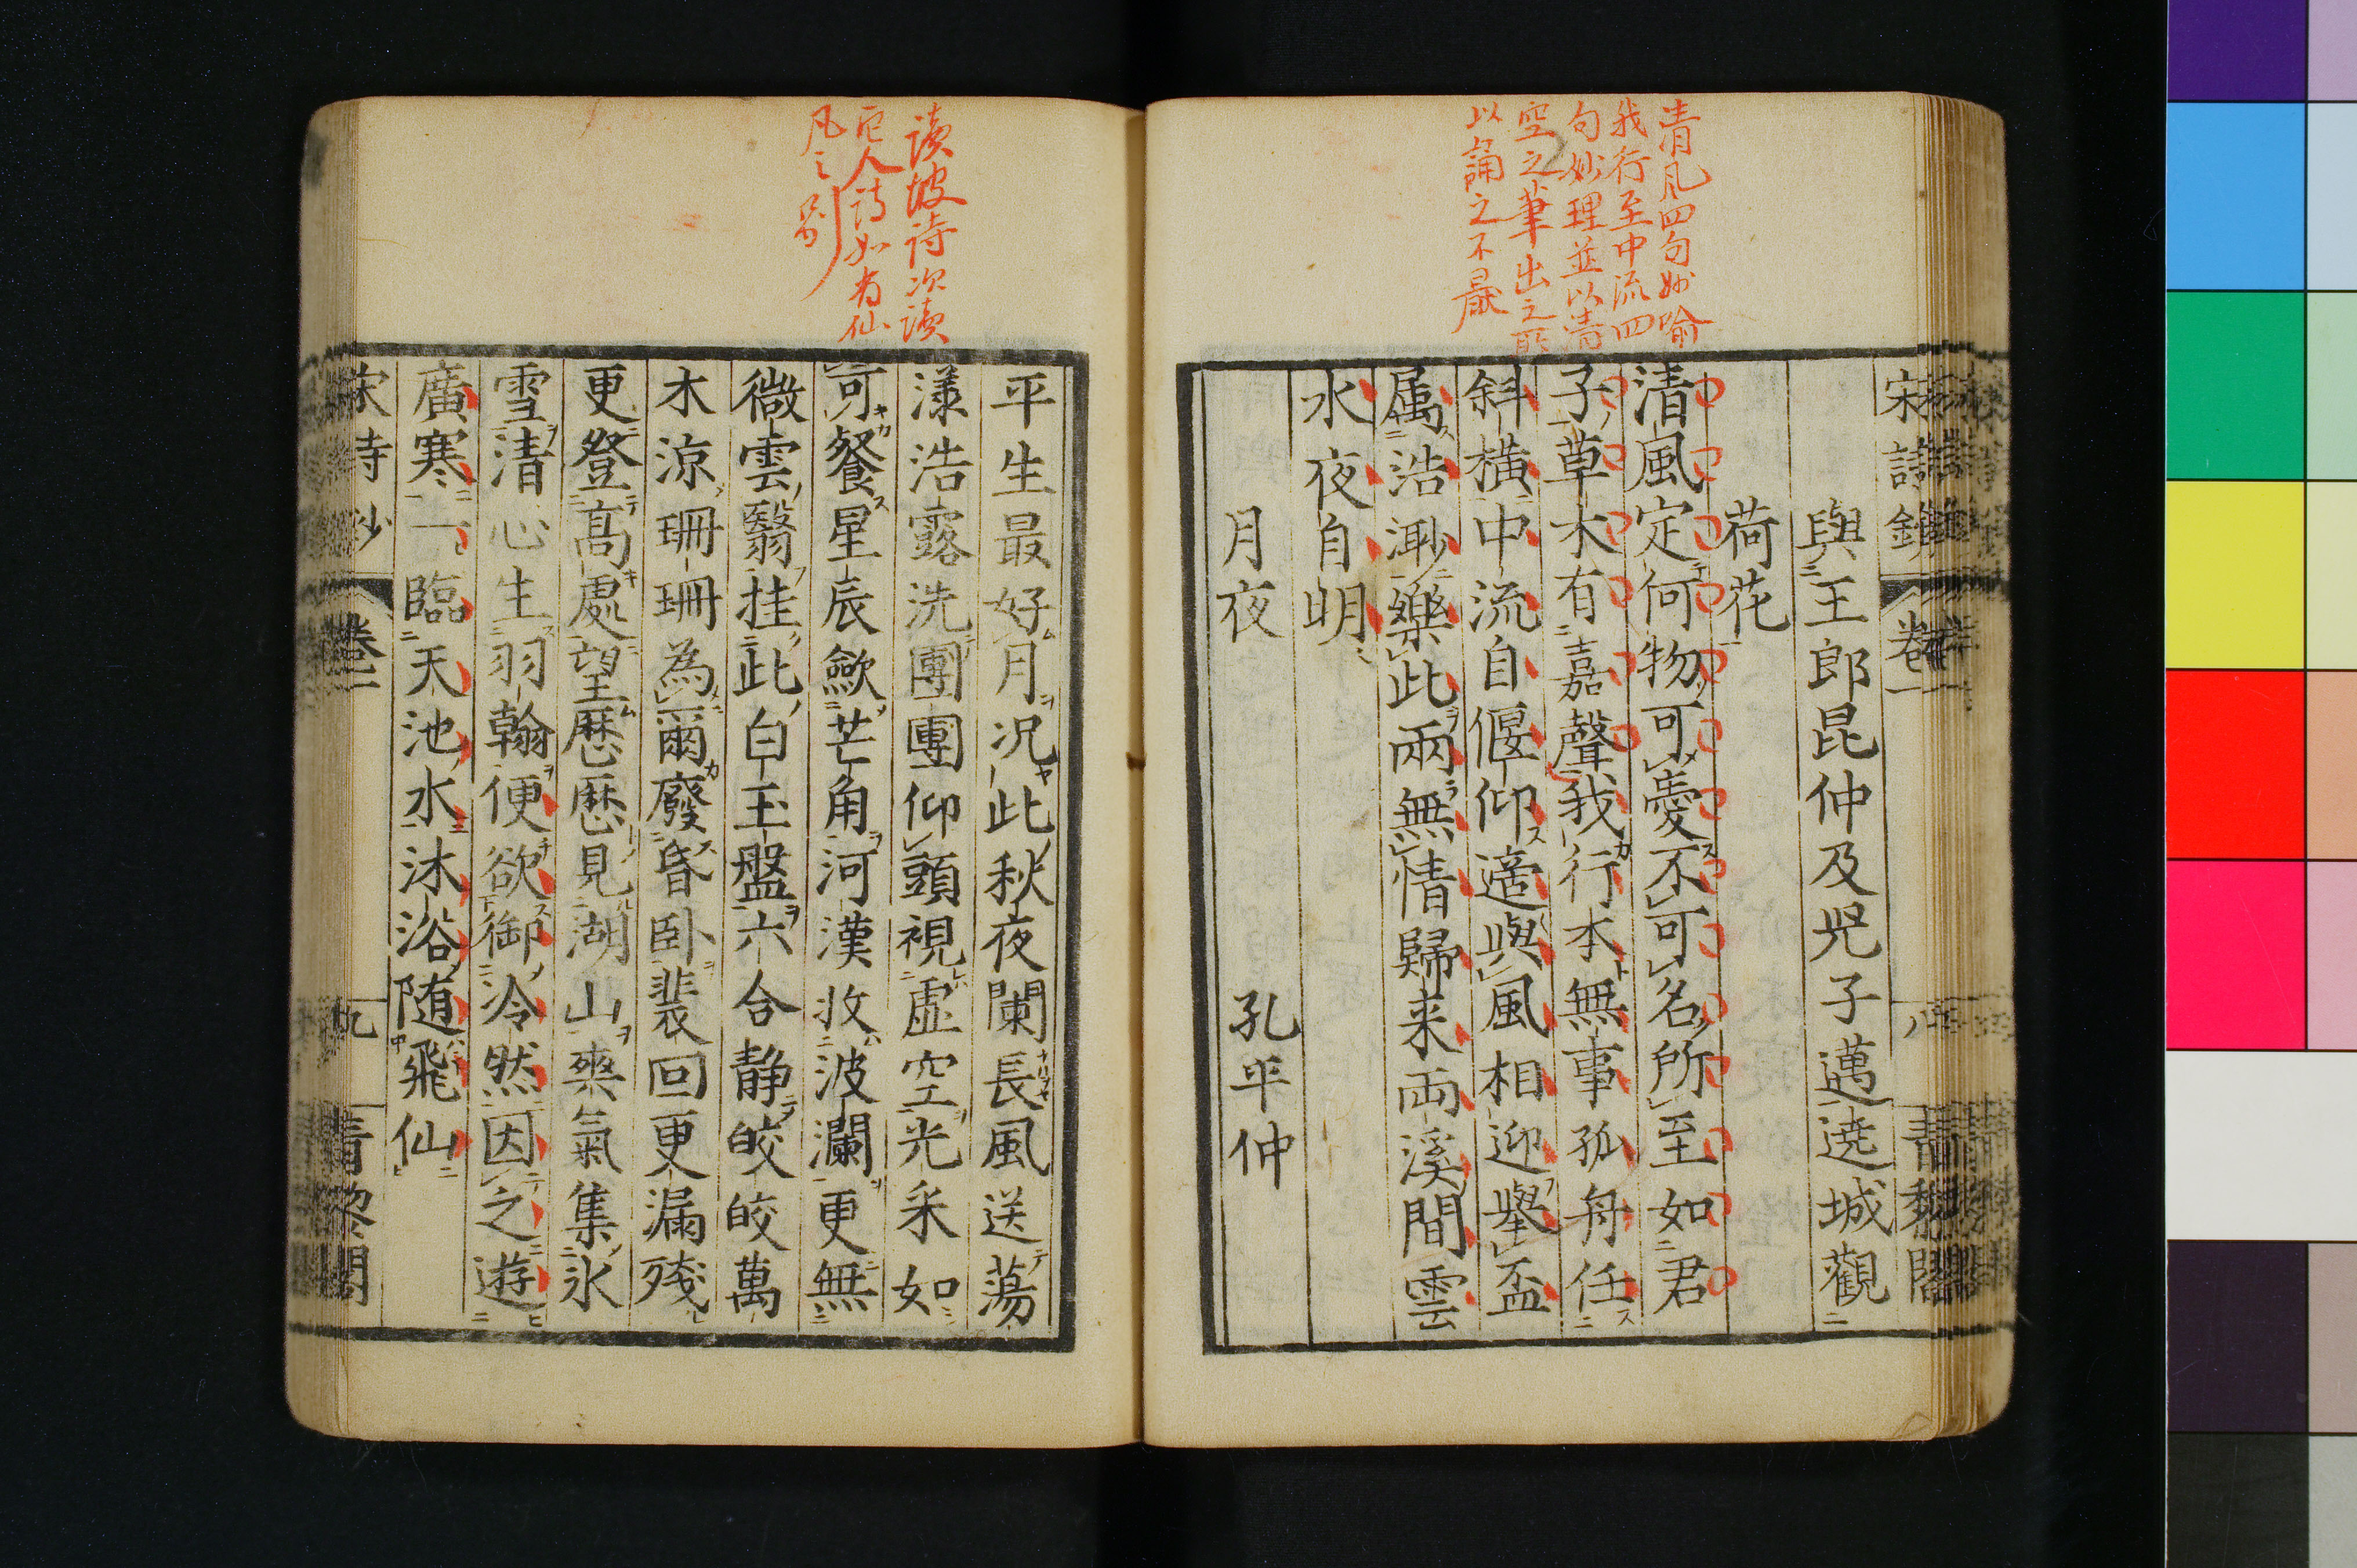 清風四句妙喻
我行至中流四
句妙理並以清
空之筆出之所
以誦之不厭
宋詩鈔 卷二 八 青藜閣
與王郎昆仲及兒子邁遶城觀
荷花
清風定何物可愛不可名所至如君
子草木有嘉聲我行本無事孤舟任
斜橫中流自偃仰適與風相迎舉盃
属浩渺樂此兩無情歸来兩溪間雲
水夜自明
月夜 孔平仲
讀坡詩次讀
它人詩如有仙
凡之別
平生最好月况此秋夜闌長風送蕩
漾浩露洗團團仰頭視虛空光采如
可餐星辰歛芒角河漢收波瀾更無
微雲翳挂此白玉盤六合静皎皎萬
木涼珊珊為爾廢昏卧裴回更漏殘
更登高處望歷歷見湖山爽氣集氷
雪清心生羽翰便欲御冷然因之遊
廣寒一臨天池水沐浴随飛仙
宋詩鈔 卷二 九 青藜閣